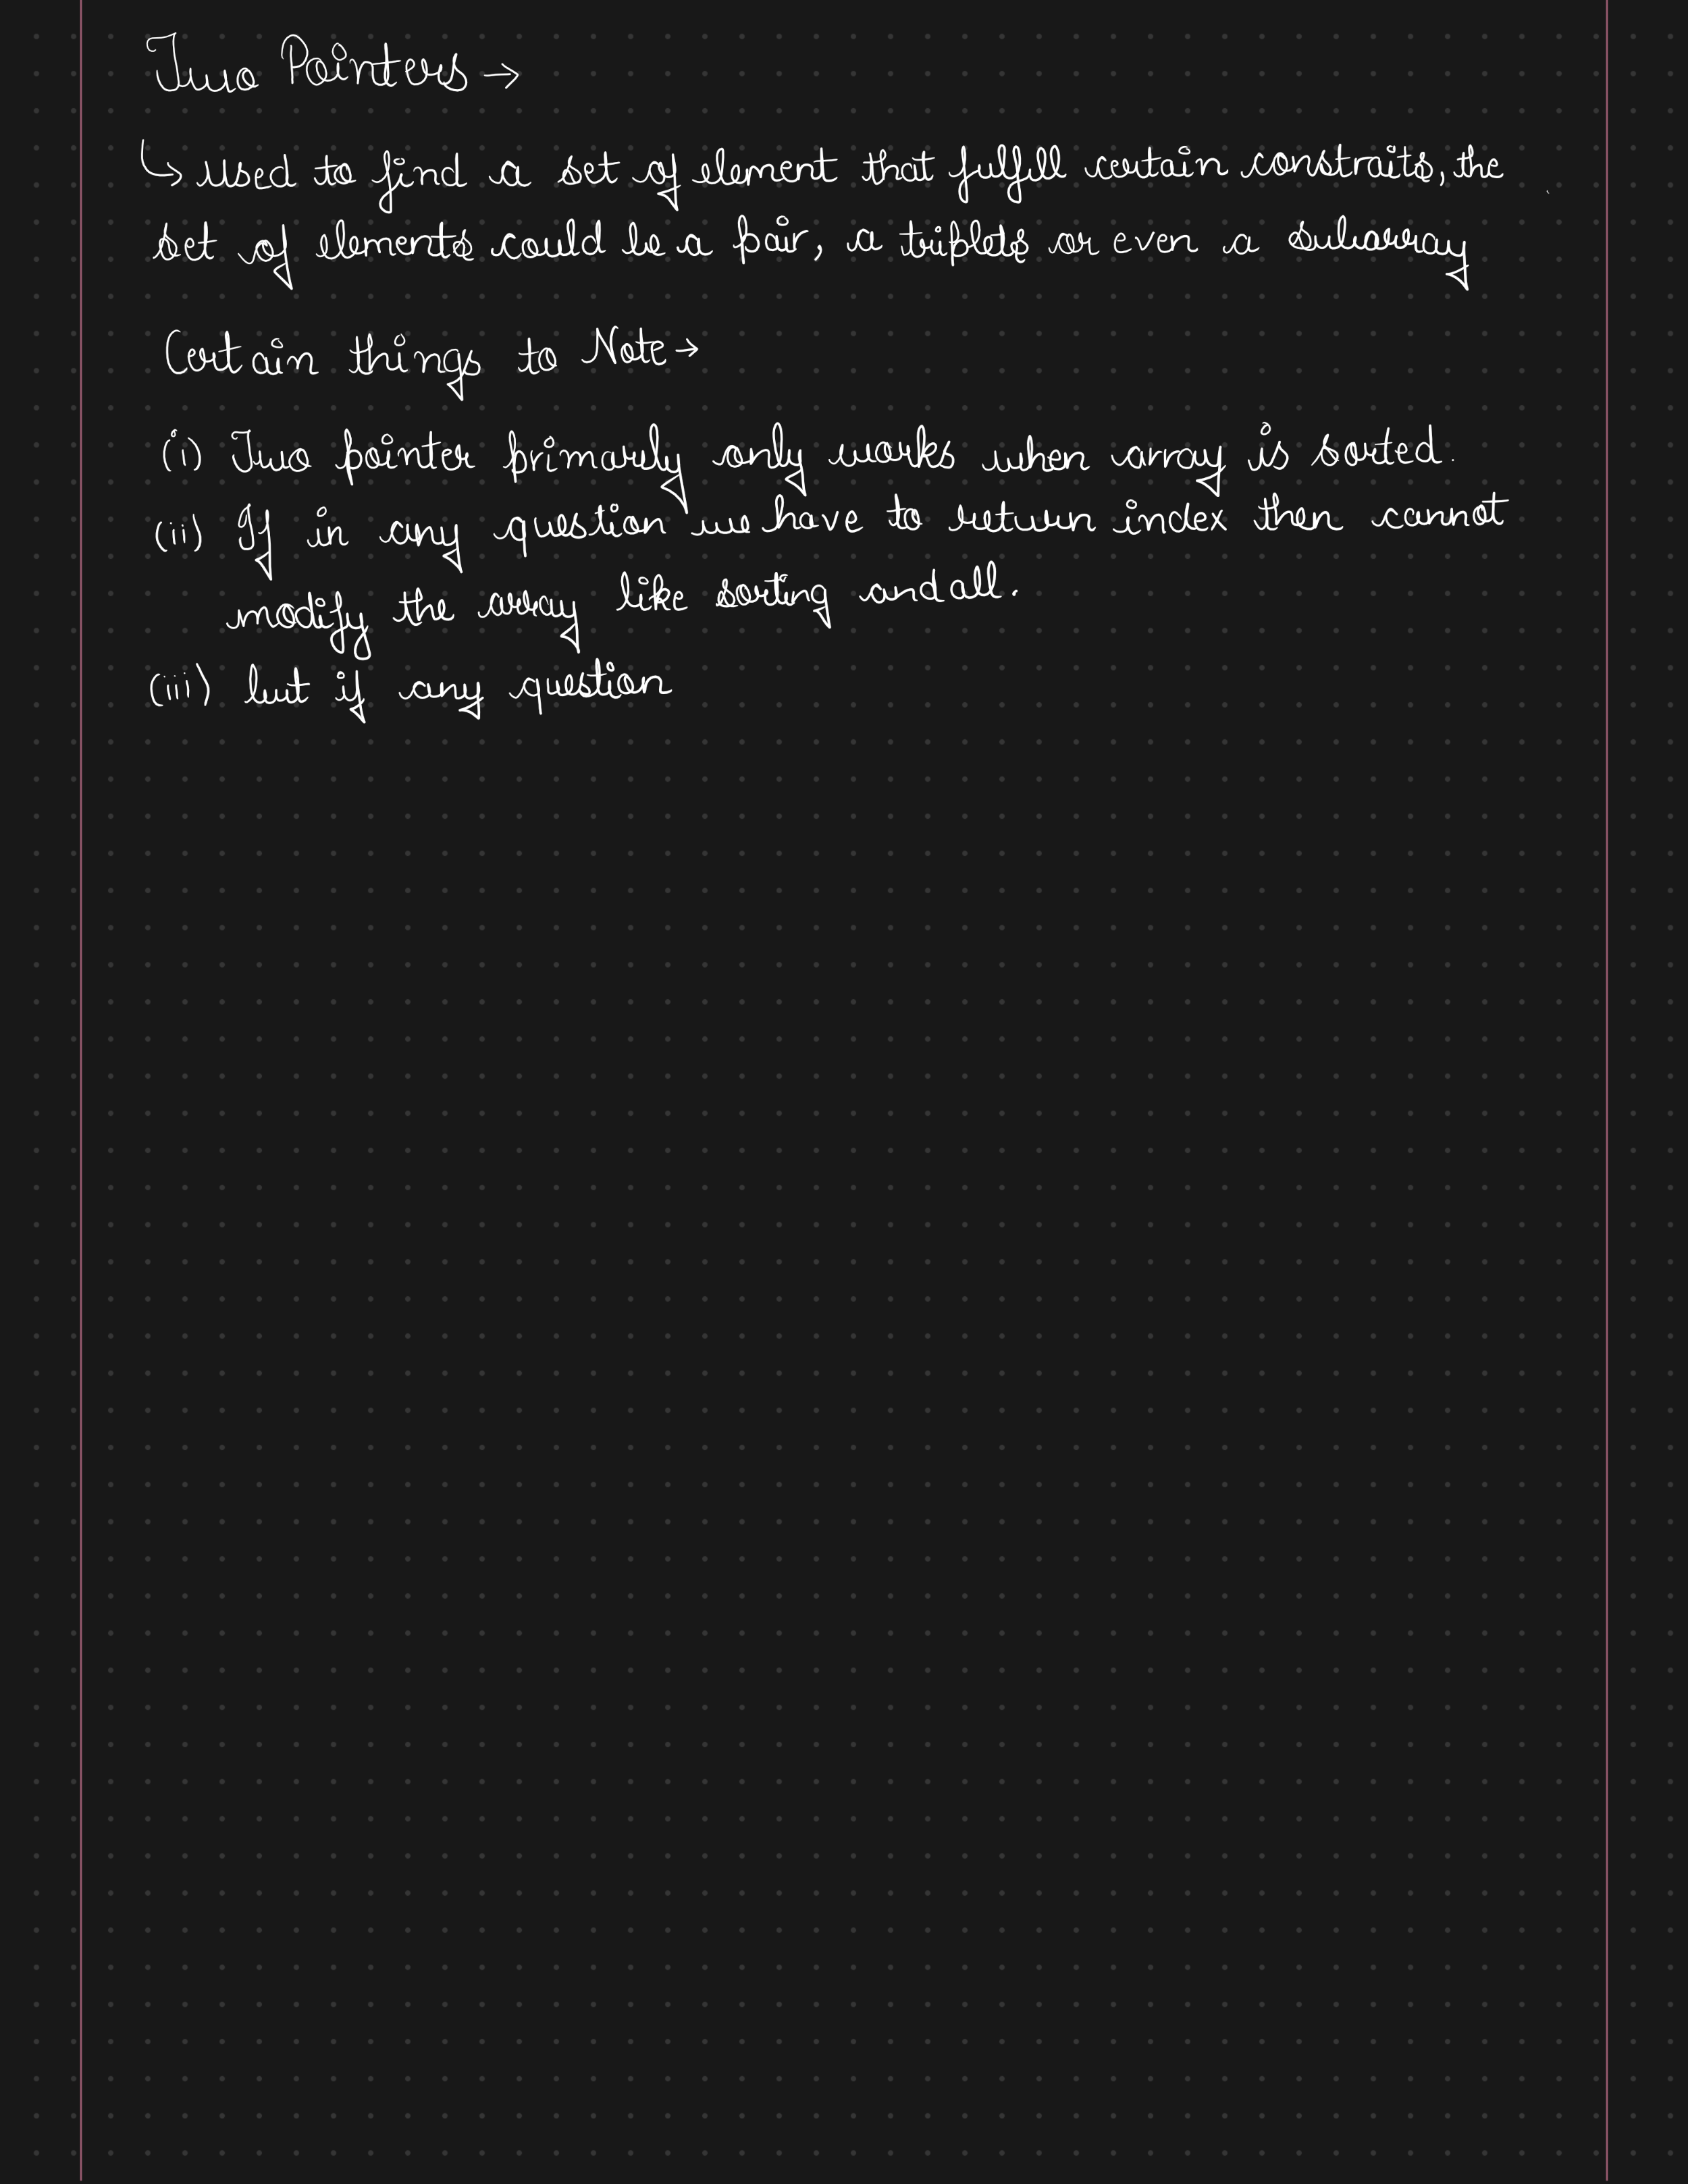 Two Pointers →
↳ Used to find a set of element that fulfill certain constraits, the
set of elements could be a pair, a triplets or even a subarray
Certain things to Note →
(i) Two pointer primarily only works when array is sorted.
(ii) If in any question we have to return index then cannot
modify the array like sorting and all.
(iii) but if any question